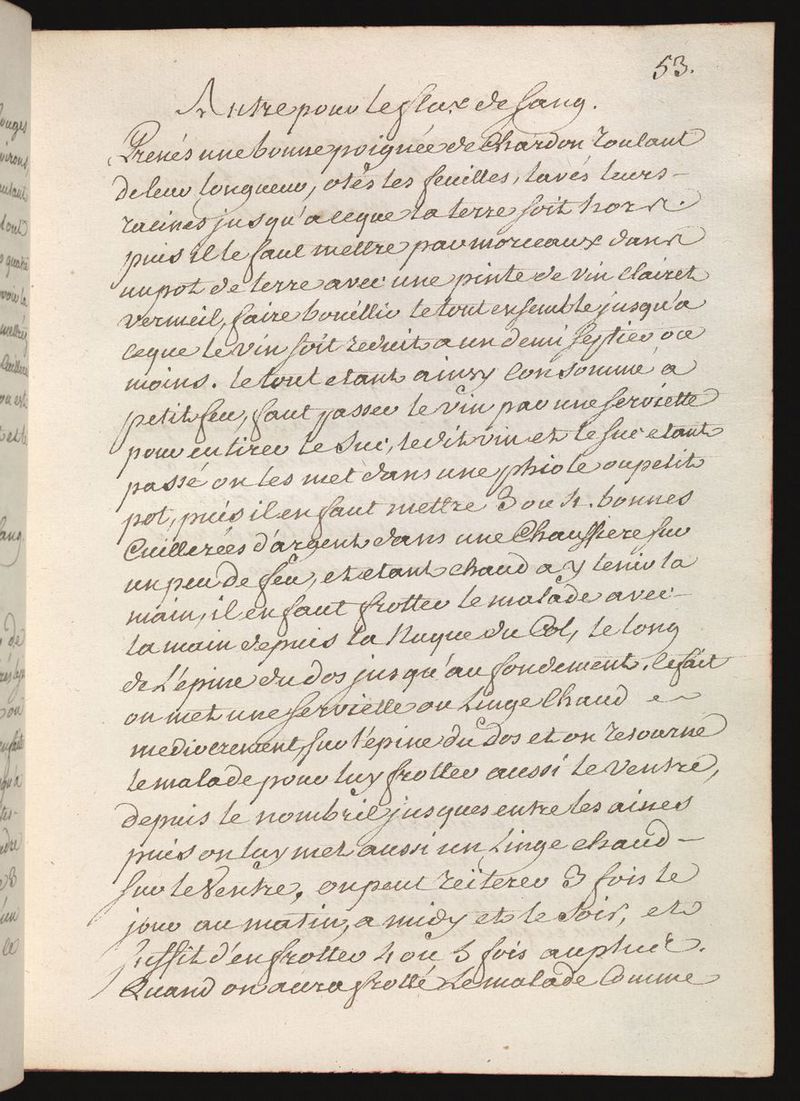 53.
Autre pour le flux de sang.
Prenés une bonne poignée de Chardon roulant
de leur longueur, otés les feuilles, lavés leurs
racines jusqu'a ceque la terre soit hors.
puis il le faut mettre par morceaux dans
un pot de terre avec une pinte de vin clairet
vermeil, faire bouëllir le tout ensemble jusqu'a
ceque le vin soit reduit a un demi septier ou
moins. le tout etant ainsy Consommé a
petit feu, faut passer le vin par une serviette
pour en tirer le suc, le dit vin et le suc etant
passé on les met dans une phiole ou petit
pot, puis il en faut mettre 3 ou 4. bonnes
Cuillerées d'argent dans une Chauffiere sur
un peu de feu, et etant chaud a y tenir la
main, il en faut frotter le malade avec
la main depuis la Nuque du Col, le long
de l'épine du dos jusqu'au fondement. Ce fait
on met une serviette ou Linge Chaud
mediocrement, sur l'épine du dos et on retourne
le malade pour luy frotter aussi le ventre,
depuis le nombril jusques entre les aines
puis on luy met aussi un Linge chaud
sur le Ventre, on peut réïterer 3 fois le
jour au matin, a midy et le soir, et
suffit d'en frotter 4 ou 5 fois au plus.
Quand on aura frotté le malade Comme